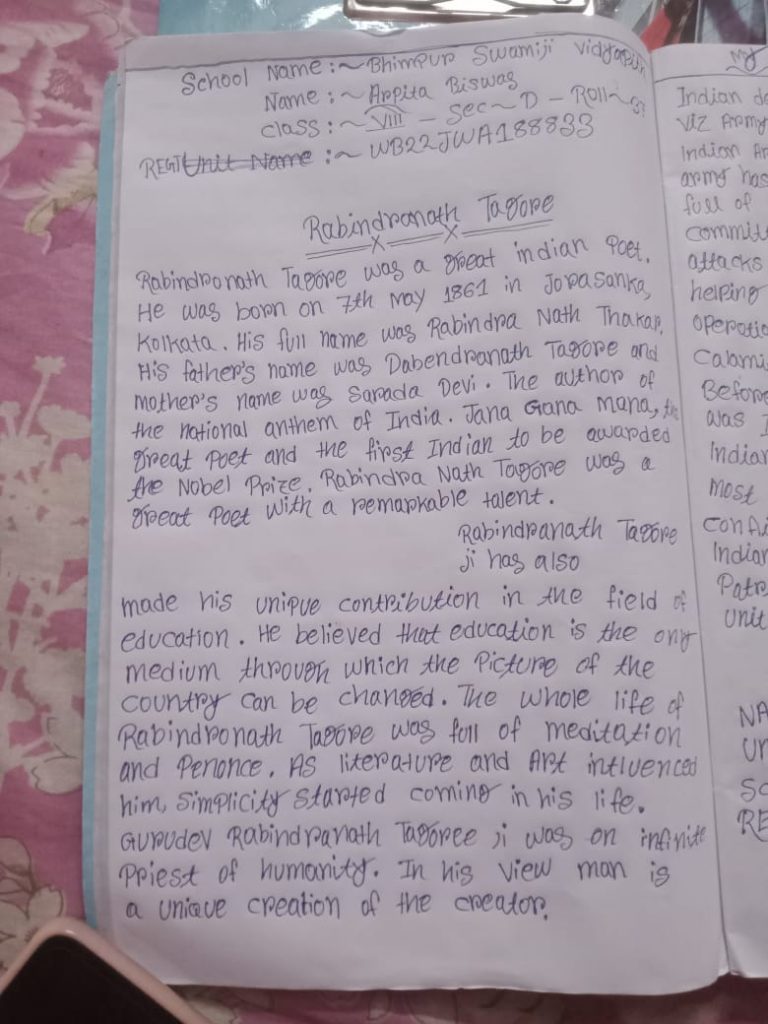 School Name :~ Bhimpur Swamiji Vidyapith
Name :~ Arpita Biswas
class :~ VIII - Sec ~ D - Roll ~
REGT Unit Name :~ WB22JWA188833
Rabindranath Tagore
Rabindronath Tagore was a great indian Poet.
He was born on 7th May 1861 in Jorasanka,
Kolkata. His full name was Rabindra Nath Thakar,
His father's name was Dabendranath Tagore and
mother's name was Sarada Devi. The author of
the national anthem of India. Jana Gana Mana, the
great Poet and the first Indian to be awarded
the Nobel Prize. Rabindra Nath Tagore was a
great Poet with a remarkable talent.
Rabindranath Tagore
ji has also
made his unique contribution in the field of
education. He believed that education is the only
medium through which the Picture of the
country can be changed. The whole life of
Rabindronath Tagore was full of meditation
and Penonce. As literature and Art intluenced
him, Simplicity started coming in his life.
Gurudev Rabindranath Tagoree ji was on infinite
Priest of humanity. In his view man is
a unique creation of the creator.
My
Indian
Viz Army
Indian
army has
full of
attacks
helping
Before
was
Indian
most
Indian
unit